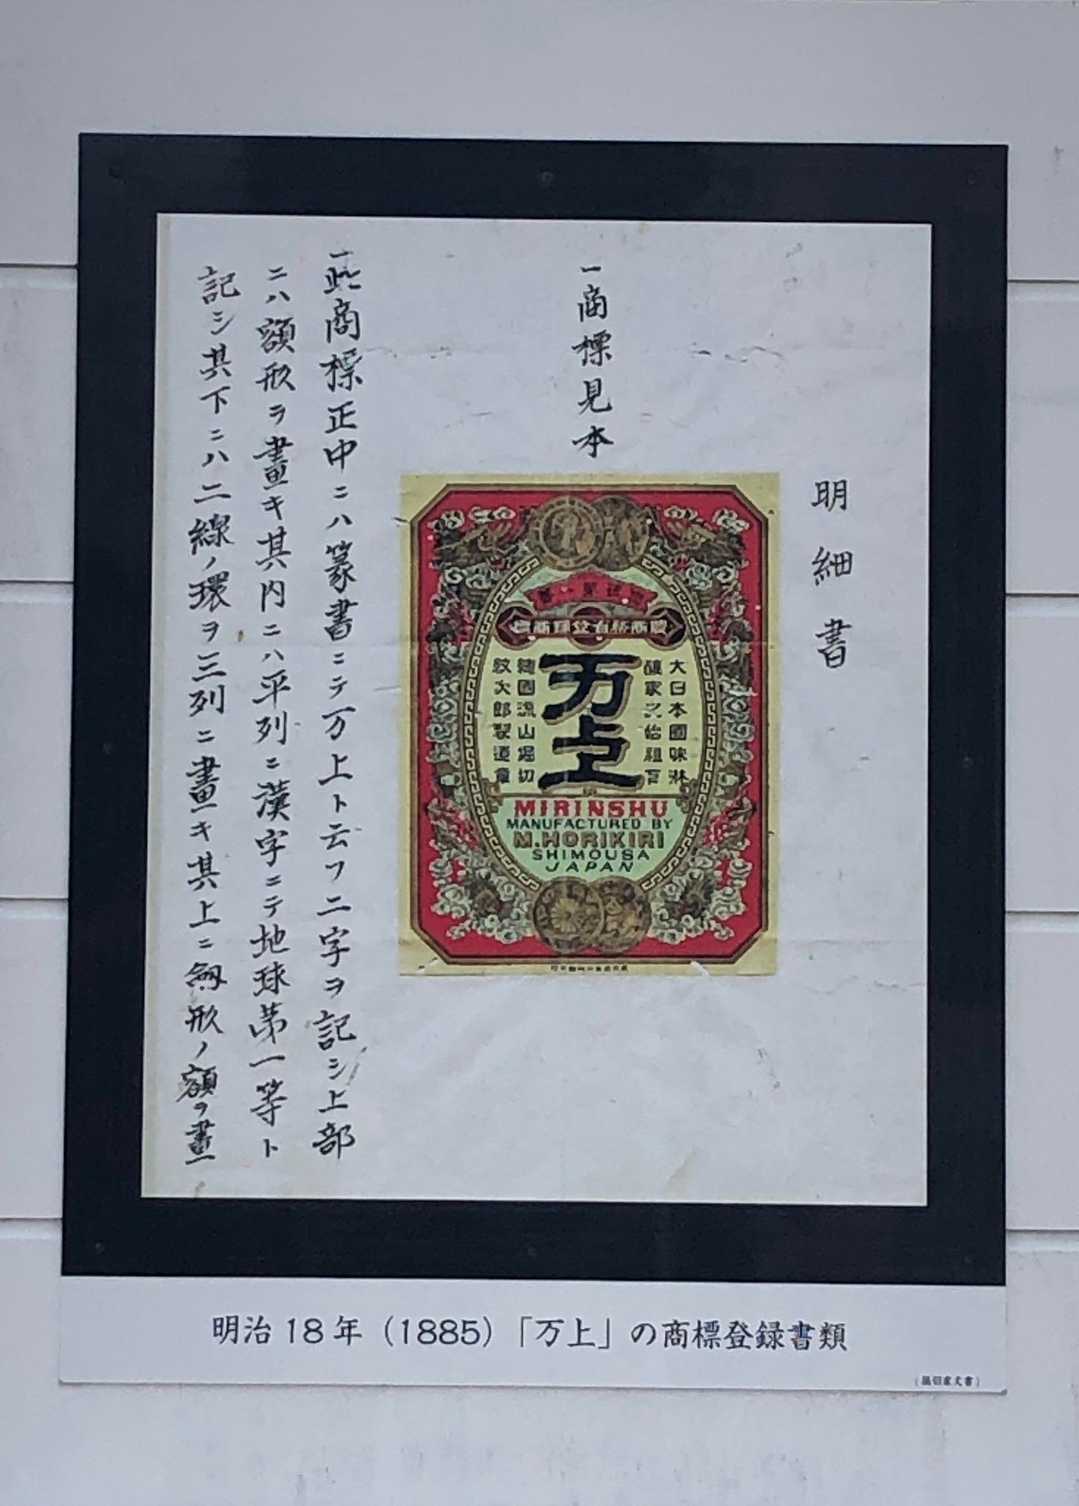 明細書
一商標見本
大日本國味淋
釀家之始祖下
万上
總國流山堀切
紋次郎製造章
MIRINSHU
MANUFACTURED BY
M.HORIKIRI
SHIMOUSA
JAPAN
一此商標正中ニハ篆書ニテ万上ト云フ二字ヲ記シ上部
ニハ額形ヲ畫キ其内ニハ平列ニ漢字ニテ地球第一等ト
記シ其下ニハ二線ノ環ヲ三列ニ畫キ其上ニ劔形ノ額ヲ畫
明治18年（1885）「万上」の商標登録書類
（堀切家文書）